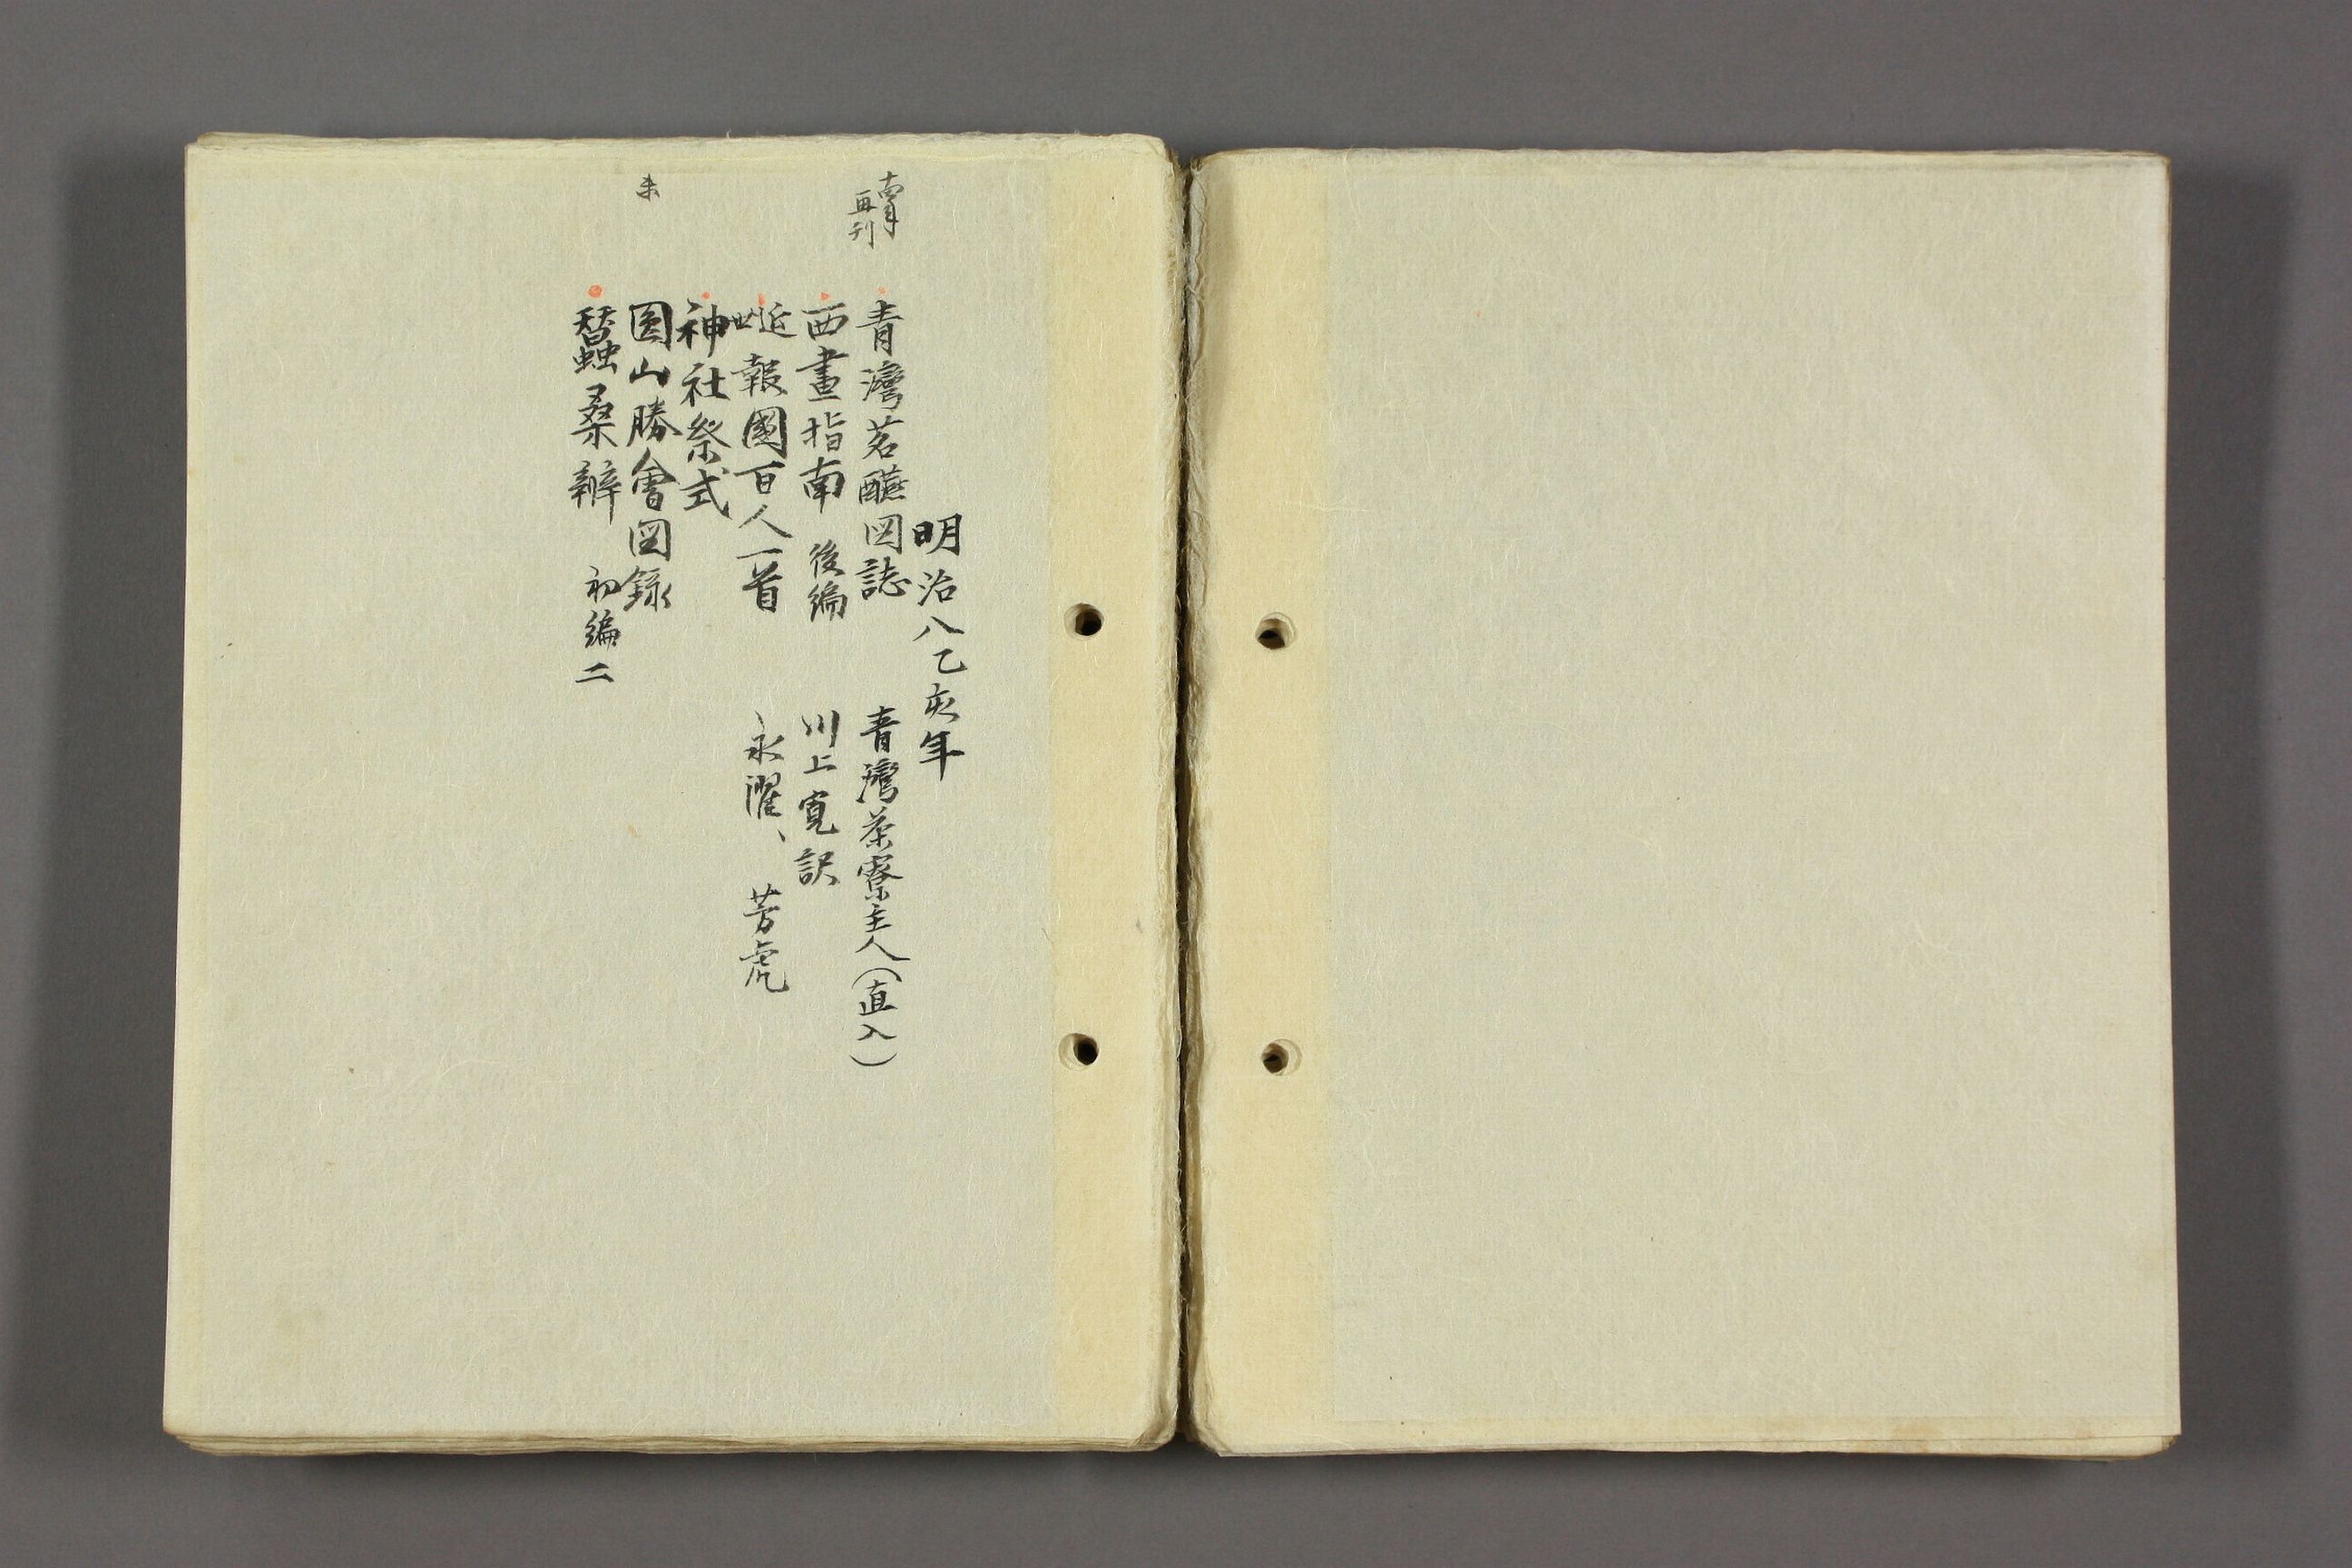 明治八乙亥年
再刊
青灣茗醼図誌 青灣茶寮主人(直入)
西畫指南 後編 川上寛訳
近世報國百人一首 永濯、芳虎
神社祭式
圓山勝會図録
蠶桑辦 初編二
未